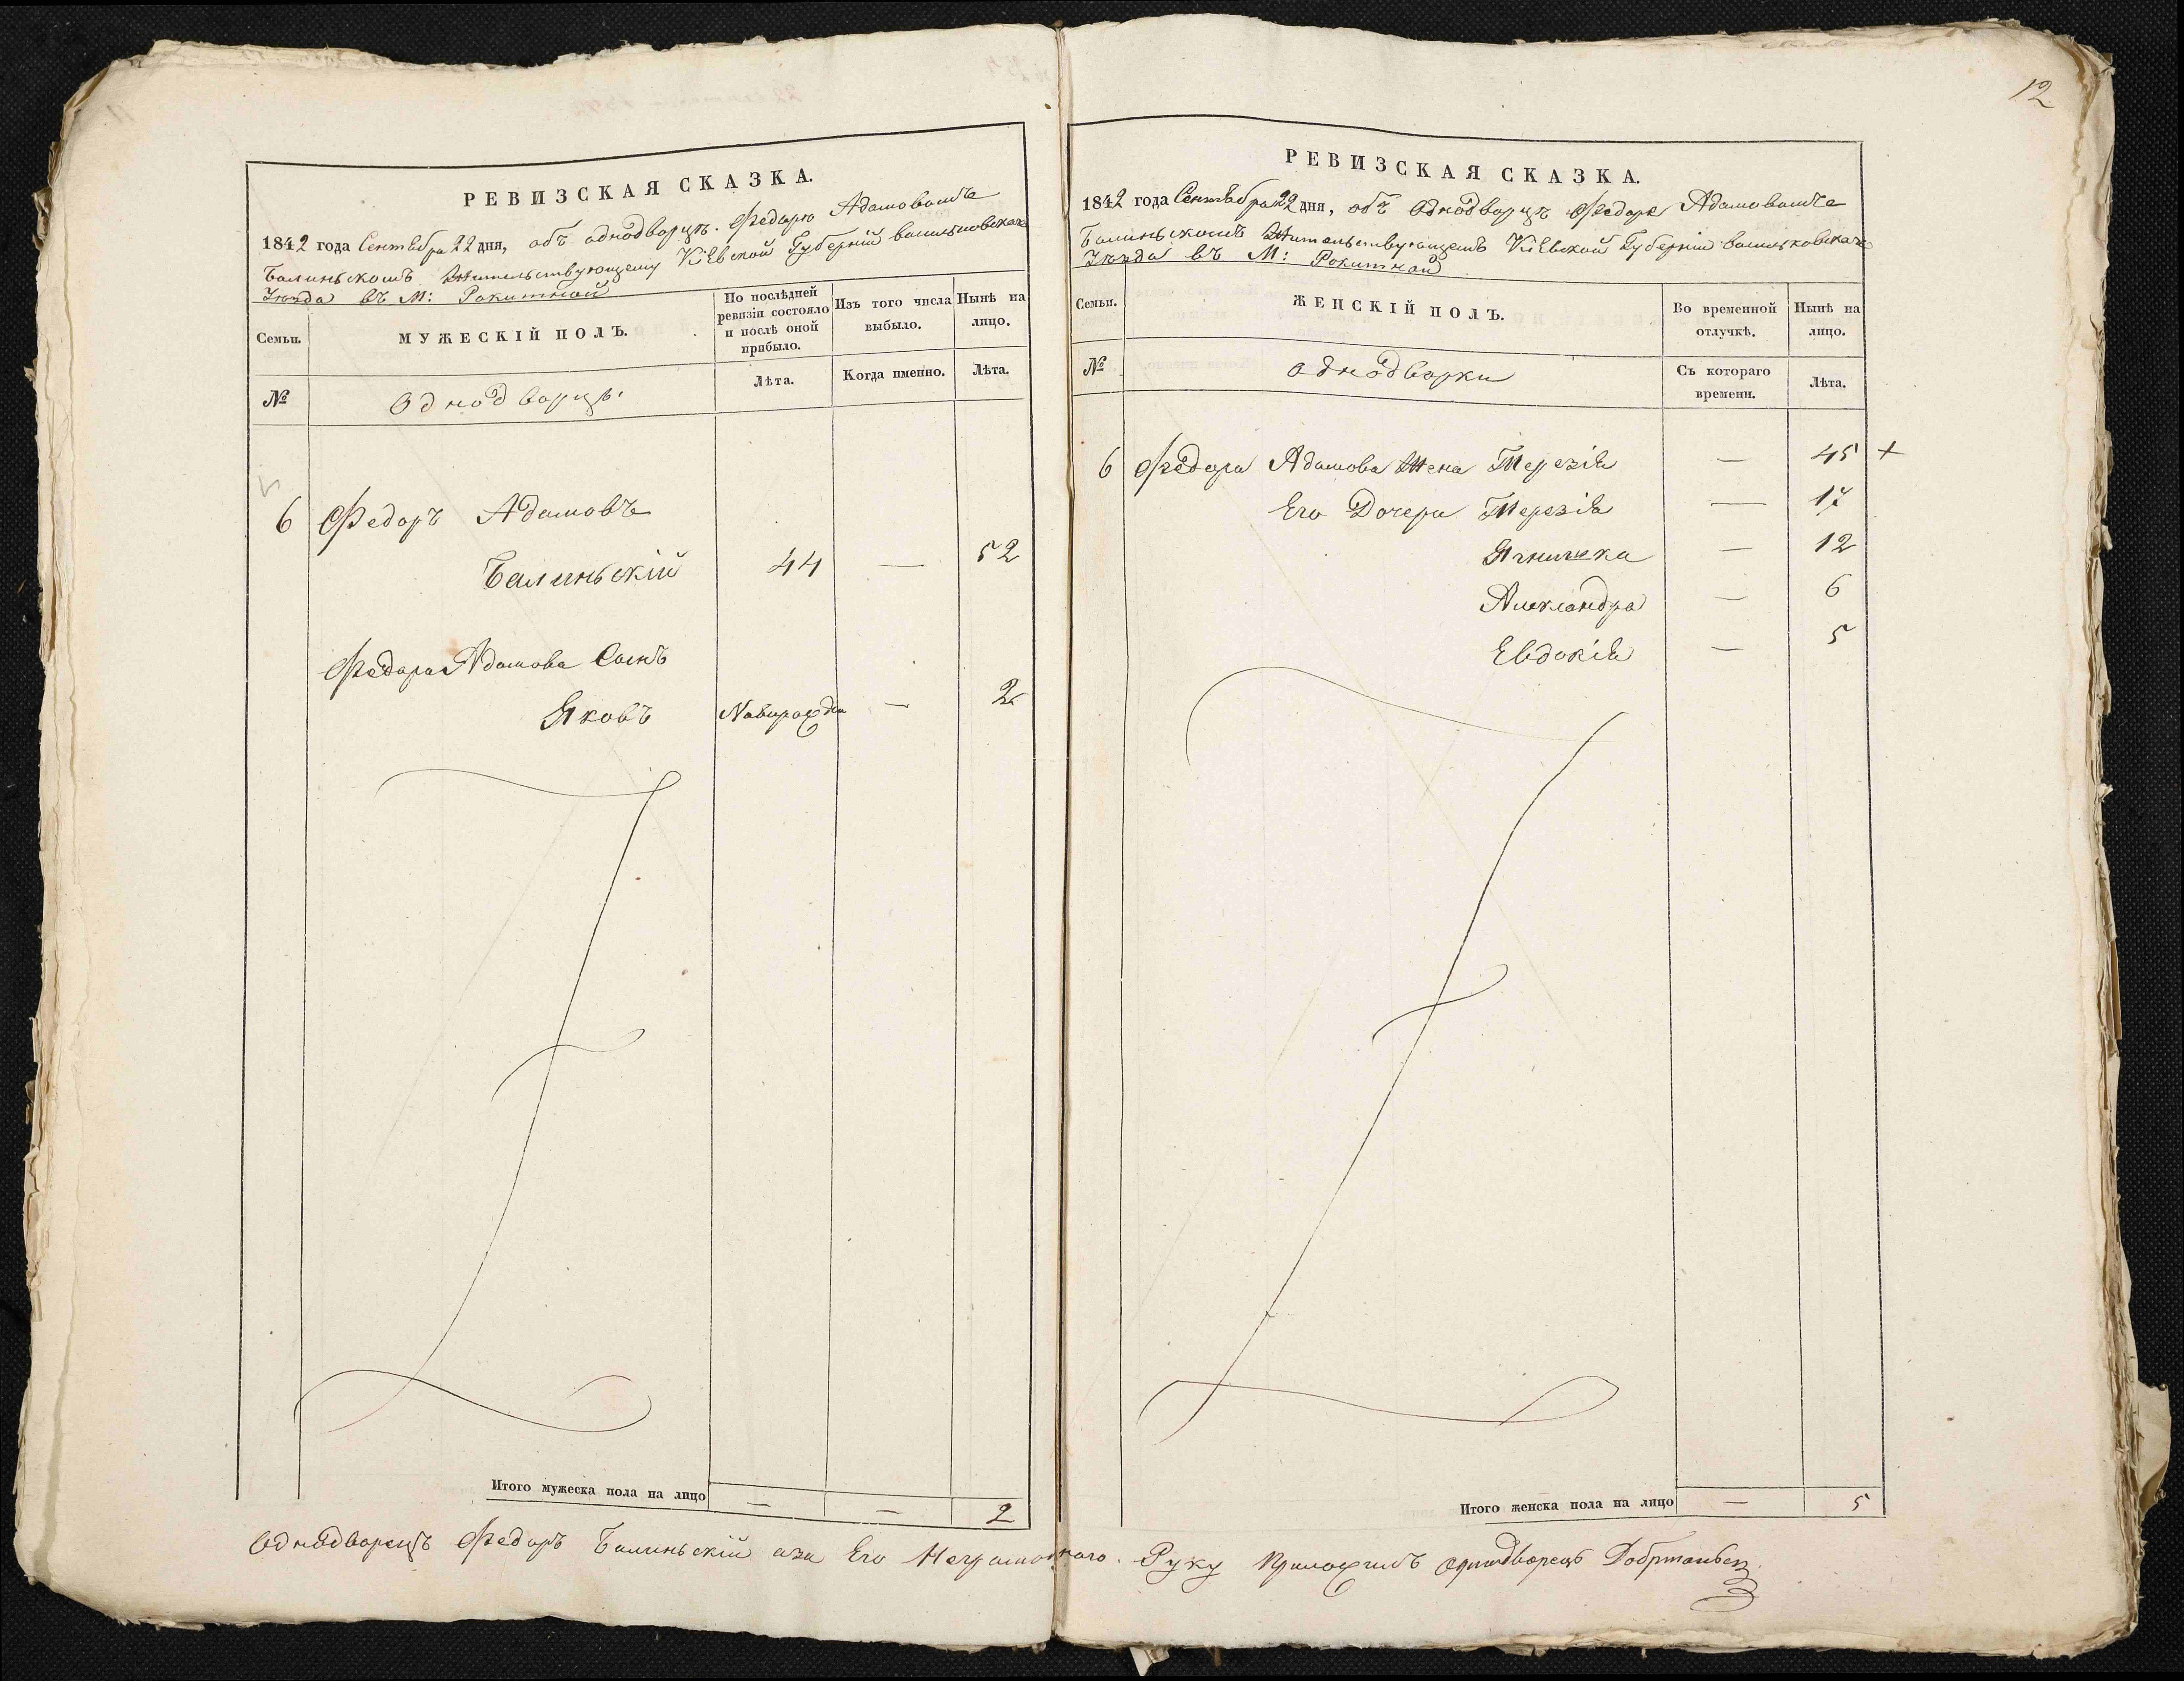 12
РЕВИЗСКАЯ СКАЗКА.
1842 года Сентября 22 дня, объ однодворцѣ. Федорю Адамовомъ
Балиньскомъ Жительствующему Кіевской Губерніи васильковскаго
Уѣзда въ М: Рокитной
Семьи.
МУЖЕСКІЙ ПОЛЪ.
По послѣдней ревизіи состояло и послѣ оной прибыло.
Изъ того числа выбыло.
Нынѣ на лицо.
№
Однодворцы
Лѣта.
Когда именно.
Лѣта.
6 Федоръ Адамовъ
Балиньскій 44 — 52
Федора Адамова Сынъ
Яковъ Новорожден — 2
Итого мужеска пола на лицо — — 2
РЕВИЗСКАЯ СКАЗКА.
1842 года Сентября 22 дня, объ Однодворцѣ Федорѣ Адамовомъ
Балиньскомъ Жительствующемъ Кіевской Губерніи васильковскаго
Уѣзда въ М: Рокитной
Семьи.
ЖЕНСКІЙ ПОЛЪ.
Во временной отлучкѣ.
Нынѣ на лицо.
№
Однодворки
Съ котораго времени.
Лѣта.
6 Федора Адамова Жена Терезія — 45 +
Его Дочери Терезія — 17
Ягнишка — 12
Александра — 6
Евдокія — 5
Итого женска пола на лицо — 5
Однодворецъ Федоръ Балиньскій аза Его Неграмотнаго Руку Приложилъ однодворецъ